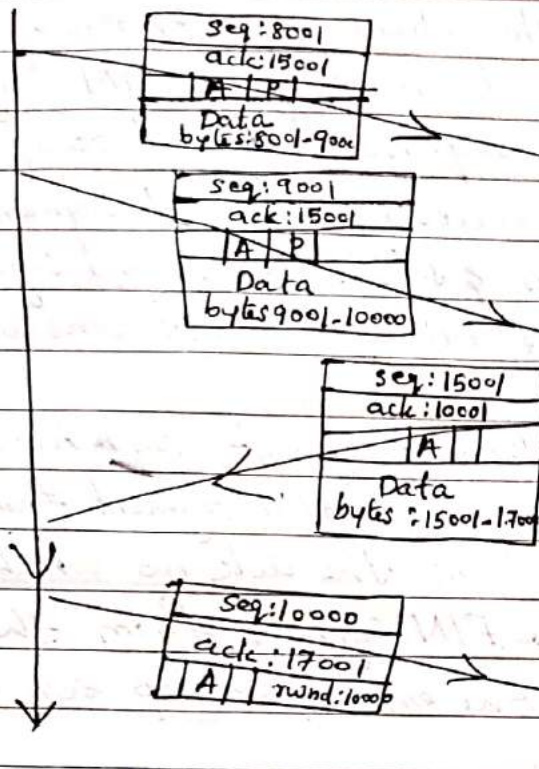 seq:8001
ack:15001
A P
Data
bytes:8001-9000
seq: 9001
ack:15001
A P
Data
bytes 9001-10000
seq:15001
ack:10001
A
Data
bytes :15001-1700
Seq:10000
ack:17001
A rwnd:10000